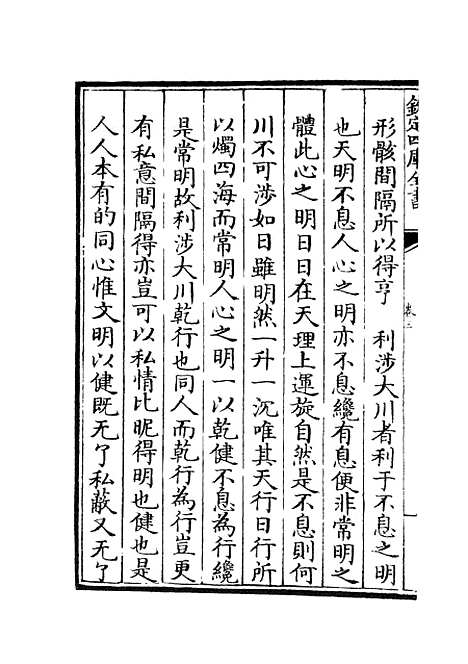 欽定四庫全書
卷二
形骸間隔所以得亨　利涉大川者利于不息之明
也天明不息人心之明亦不息纔有息便非常明之
體此心之明日日在天理上運旋自然是不息則何
川不可涉如日雖明然一升一沉唯其天行日行所
以燭四海而常明人心之明一以乾健不息為行纔
是常明故利涉大川乾行也同人而乾行為行豈更
有私意間隔得亦豈可以私情比昵得明也健也是
人人本有的同心惟文明以健既无了私蔽又无了